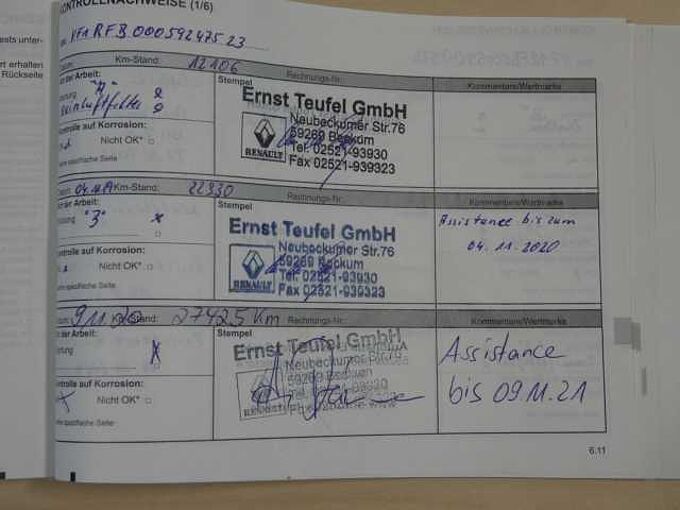 KONTROLLNACHWEISE (1/6)
VF1RFB00059247523
Km-Stand: 12106 Rechnungs-Nr.:
der Arbeit: Stempel Kommentare/Wertmarke
"A"
Ernst Teufel GmbH
Neubeckumer Str.76
59269 Beckum
Tel. 02521-93930
Fax 02521-939323
RENAULT
auf Korrosion:
Nicht OK*
spezifische Seite
Km-Stand: 22930 Rechnungs-Nr.:
der Arbeit: Stempel Kommentare/Wertmarke
"3" x
Assistance bis zum
04.11.2020
Ernst Teufel GmbH
Neubeckumer Str.76
59269 Beckum
Tel. 02521-93930
Fax 02521-939323
RENAULT
auf Korrosion:
Nicht OK*
spezifische Seite
9.11.20 Km-Stand: 27425 Km Rechnungs-Nr.:
der Arbeit: Stempel Kommentare/Wertmarke
x
Assistance
bis 09.11.21
Ernst Teufel GmbH
Neubeckumer Str.76
59269 Beckum
auf Korrosion:
x Nicht OK*
spezifische Seite
6.11
ests unter-
erhalten
Rückseite